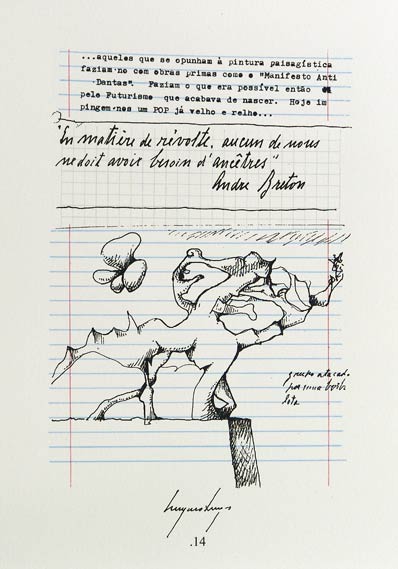 ...aqueles que se opunham à pintura paisagística
faziam-no com obras primas como o "Manifesto Anti
-Dantas". Faziam o que era possível então e
pelo Futurismo que acabava de nascer. Hoje im
pingem-nos um POP já velho e relho...
"En matière de révolte, aucun de nous
ne doit avoir besoin d'ancêtres"
André Breton
grupo atacado
por uma borbo
leta
.14